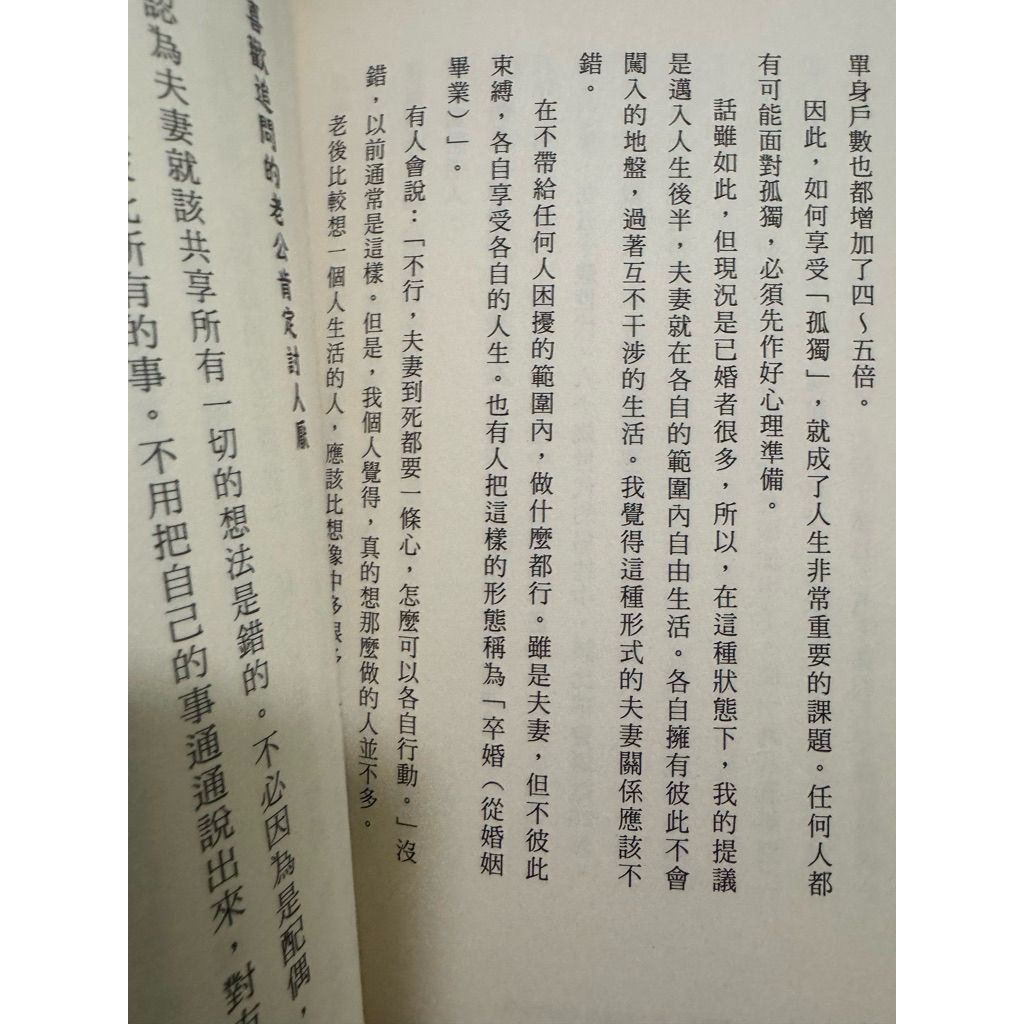 單身戶數也都增加了四～五倍。
因此，如何享受「孤獨」，就成了人生非常重要的課題。任何人都
有可能面對孤獨，必須先作好心理準備。
話雖如此，但現況是已婚者很多，所以，在這種狀態下，我的提議
是邁入人生後半，夫妻就在各自的範圍內自由生活。各自擁有彼此不會
闖入的地盤，過著互不干涉的生活。我覺得這種形式的夫妻關係應該不
錯。
在不帶給任何人困擾的範圍內，做什麼都行。雖是夫妻，但不彼此
束縛，各自享受各自的人生。也有人把這樣的形態稱為「卒婚（從婚姻
畢業）」。
有人會說：「不行，夫妻到死都要一條心，怎麼可以各自行動。」沒
錯，以前通常是這樣。但是，我個人覺得，真的想那麼做的人並不多。
老後比較想一個人生活的人，應該比想像中多很多
喜歡追問的老公肯定討人厭
認為夫妻就該共享所有一切的想法是錯的。不必因為是配偶，
所有的事。不用把自己的事通通說出來，對